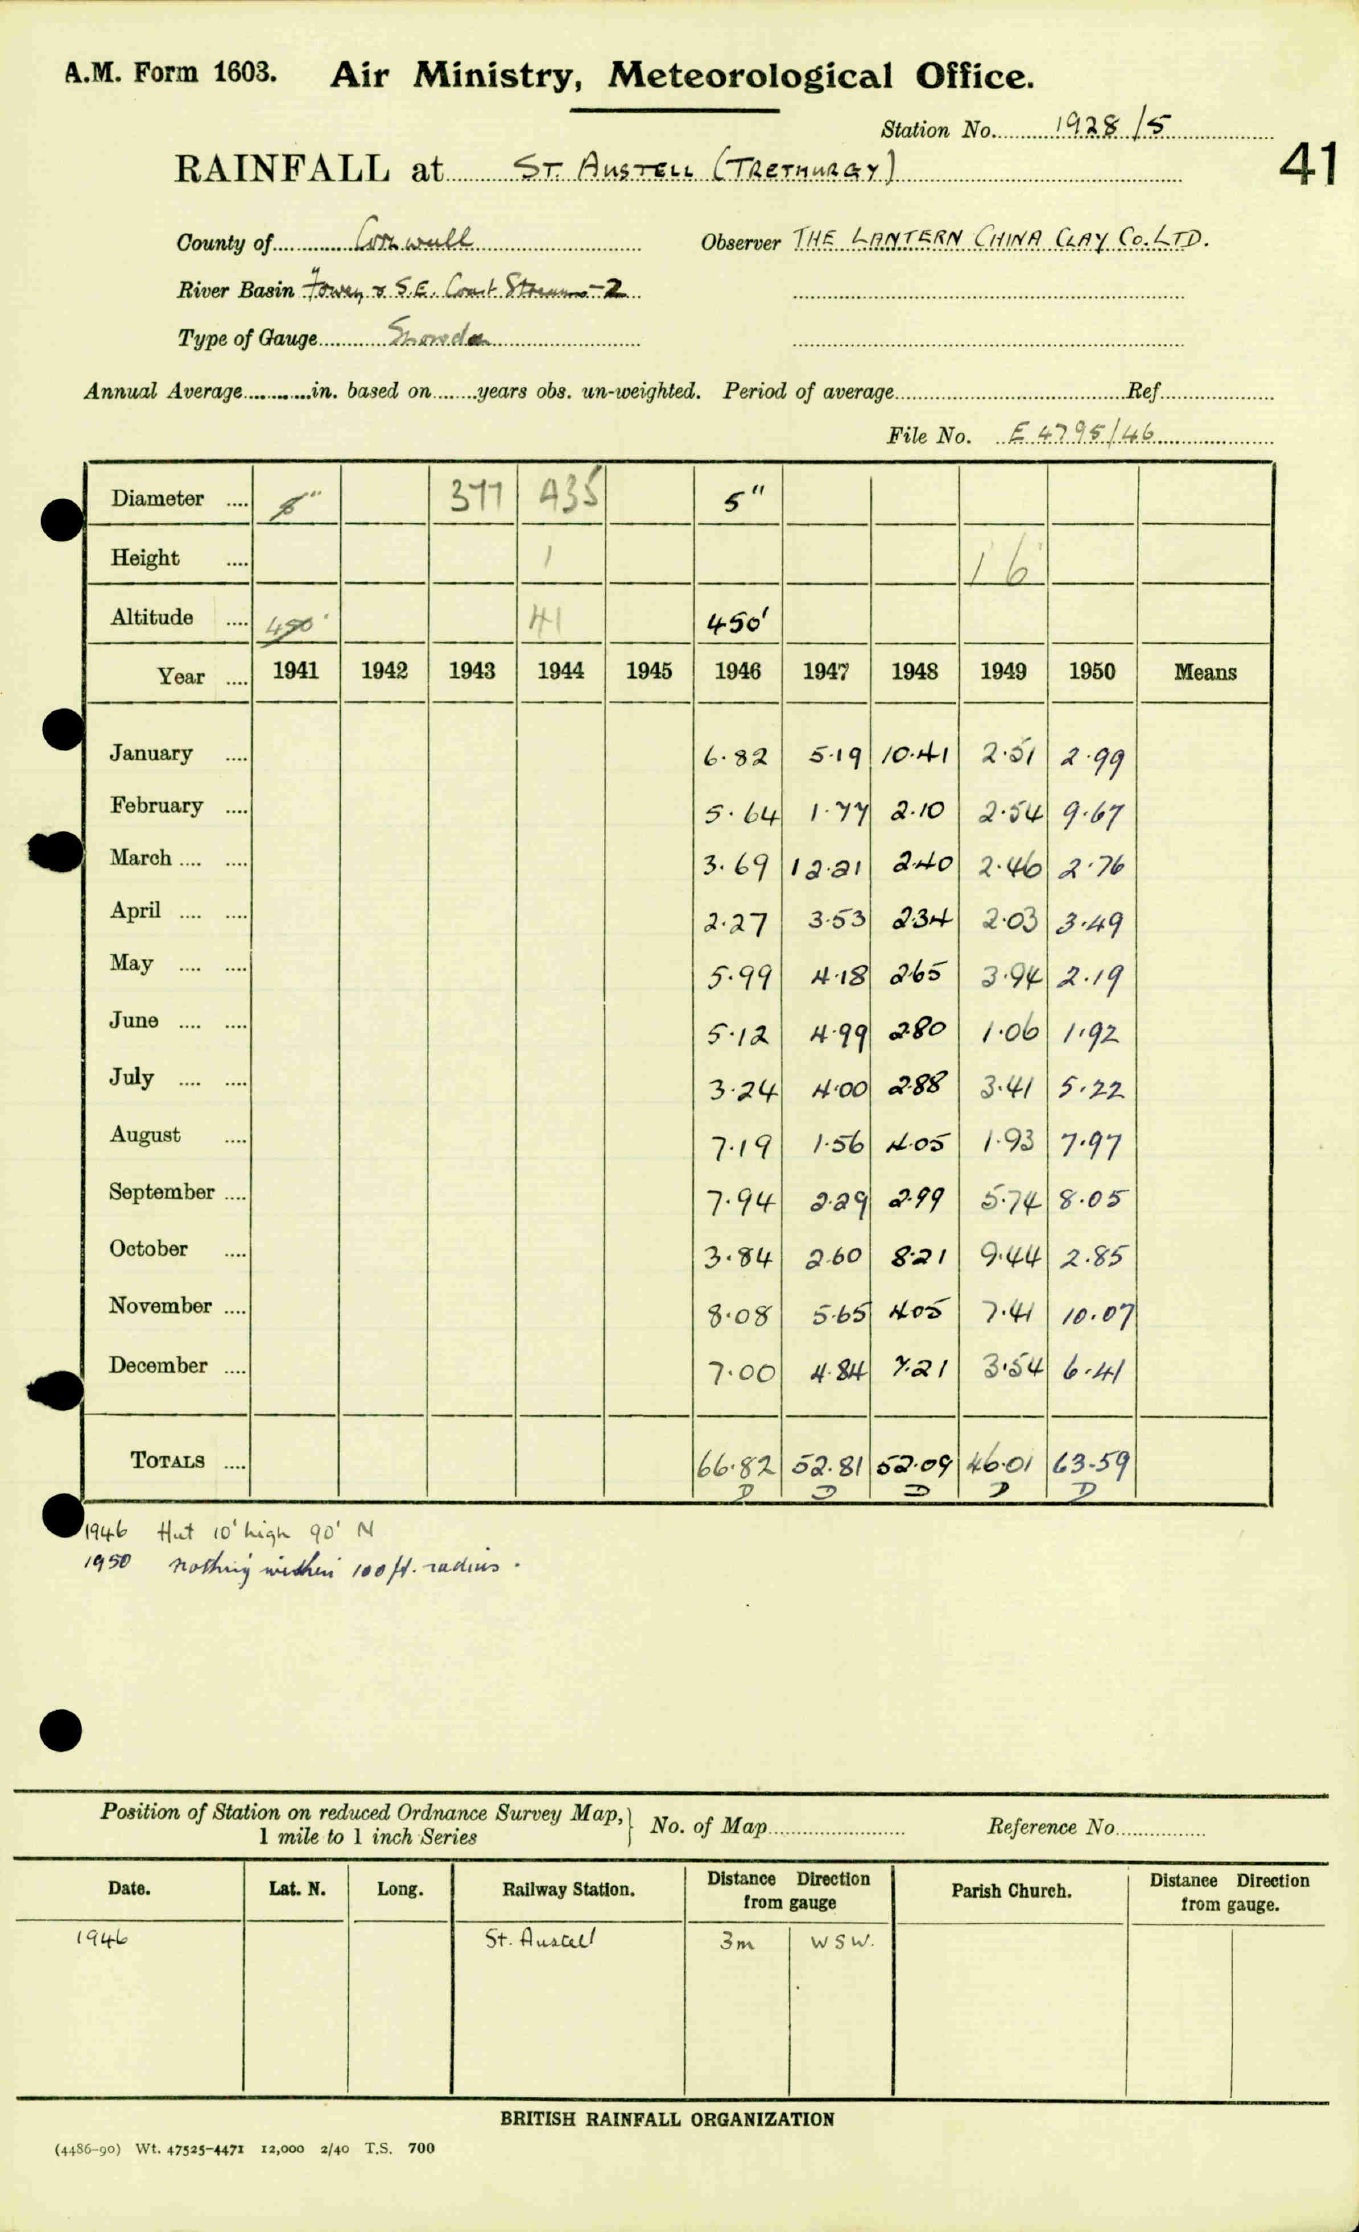 A.M. Form 1603. Air Ministry, Meteorological Office.
Station No. 1928/5
41
RAINFALL at ST. AUSTELL (TRETHURGY)
County of Cornwall Observer THE LANTERN CHINA CLAY CO. LTD.
River Basin Fowey & S.E. Coast Streams-2
Type of Gauge Snowdon
Annual Average............in. based on........years obs. un-weighted. Period of average........Ref........
File No. E 4795/46
Diameter .... 8" 377 A35 5"
Height .... 1 16
Altitude .... 450' 41 450'
Year .... 1941 1942 1943 1944 1945 1946 1947 1948 1949 1950 Means
January .... 6.82 5.19 10.41 2.51 2.99
February .... 5.64 1.77 2.10 2.54 9.67
March .... .... 3.69 12.21 2.40 2.46 2.76
April .... .... 2.27 3.53 2.34 2.03 3.49
May .... .... 5.99 4.18 2.65 3.94 2.19
June .... .... 5.12 4.99 2.80 1.06 1.92
July .... .... 3.24 4.00 2.88 3.41 5.22
August .... 7.19 1.56 4.05 1.93 7.97
September .... 7.94 2.29 2.99 5.74 8.05
October .... 3.84 2.60 8.21 9.44 2.85
November .... 8.08 5.65 4.05 7.41 10.07
December .... 7.00 4.84 7.21 3.54 6.41
TOTALS .... 66.82 52.81 52.09 46.01 63.59
D D D D D
1946 Hut 10' high 90' N
1950 nothing within 100 ft. radius.
Position of Station on reduced Ordnance Survey Map,} No. of Map........ Reference No........
1 mile to 1 inch Series
Date. Lat. N. Long. Railway Station. Distance Direction from gauge Parish Church. Distance Direction from gauge.
1946 St. Austell 3m WSW.
BRITISH RAINFALL ORGANIZATION
(4486-90) Wt. 47525-4471 12,000 2/40 T.S. 700